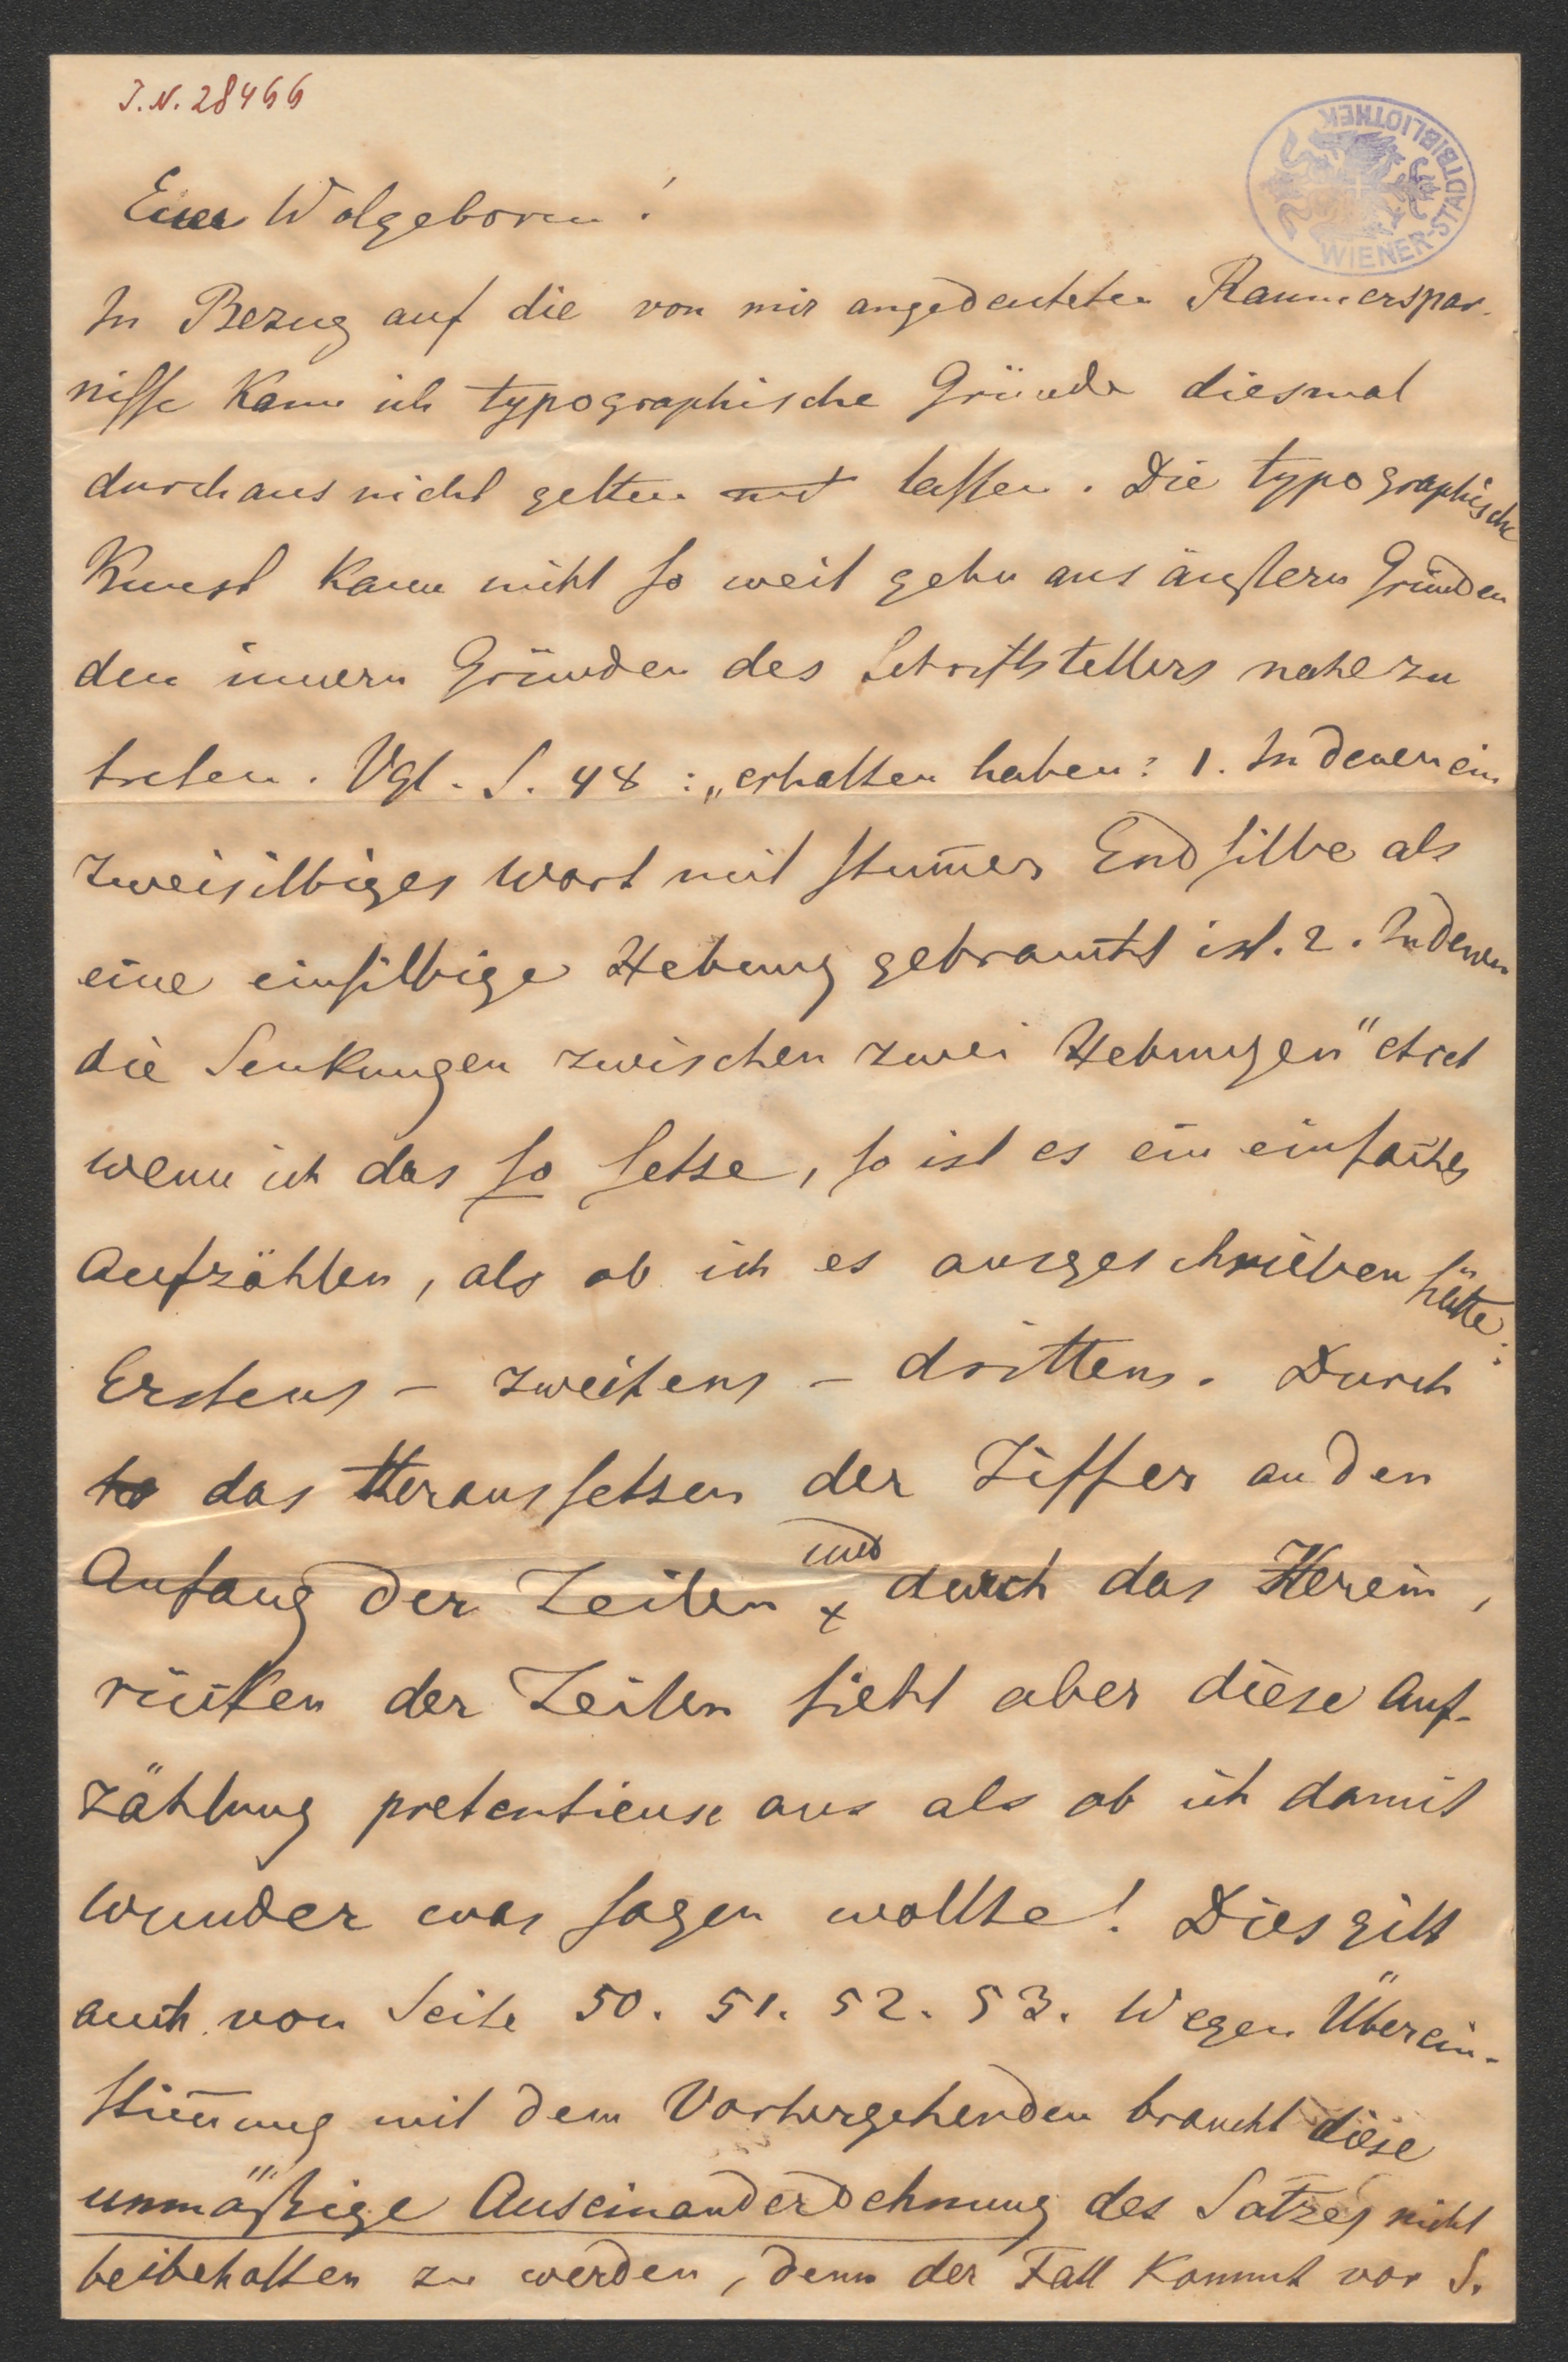 I.N. 28466
WIENER-STADTBIBLIOTHEK
Euer Wolgeboren!
In Bezug auf die von mir angedeuteten Raumerspar-
nisse kann ich typographische Gründe diesmal
durchaus nicht gelten lassen. Die typographische
Kunst kann nicht so weit gehn aus äußern Gründen
den innern Gründen des Schriftstellers nahe zu
treten. Vgl. S. 48: „erhalten haben: 1. In denen ein
zweisilbiges Wort mit stum̄er Endsilbe als
eine einsilbige Hebung gebraucht ist. 2. In denen
die Senkungen zwischen zwei Hebungen" etct
wenn ich das so setze, so ist es ein einfaches
Aufzählen, als ob ich es ausgeschrieben hätte:
Erstens – zweitens – drittens. Durch
das Heraussetzen der Ziffer an den
Anfang der Zeilen und durch das Herein,
rücken der Zeilen sieht aber diese Auf-
zählung pretentieuse aus als ob ich damit
wunder was sagen wollte! Dies gilt
auch von Seite 50. 51. 52. 53. Wegen Überein-
stim̄ung mit dem Vorhergehenden braucht diese
unmäßige Auseinanderdehnung des Satzes nicht
beibehalten zu werden, denn der Fall kommt vor S.